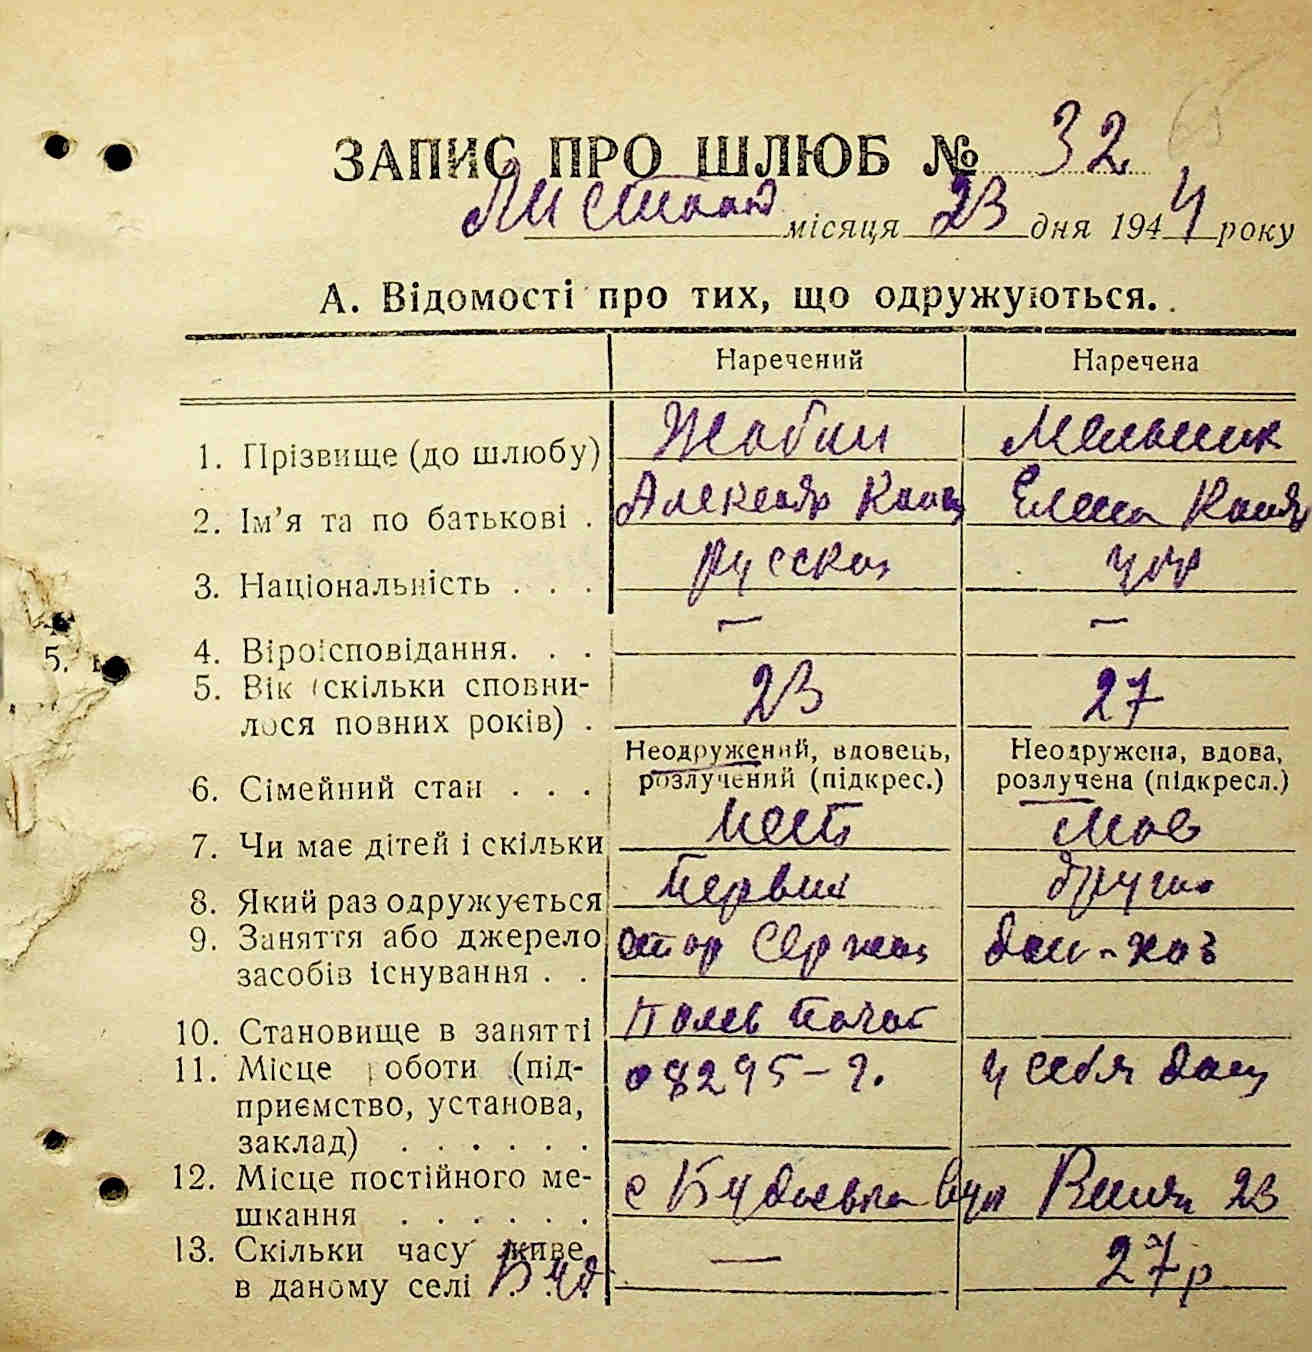 ЗАПИС ПРО ШЛЮБ № 32
Листопад місяця 23 дня 1944 року
А. Відомості про тих, що одружуються.
Наречений Наречена
1. Прізвище (до шлюбу) Жабин Мельник
2. Ім'я та по батькові . Елена
3. Національність . . . русский укр
4. Віроісповідання. . . – –
5. Вік (скільки сповни-
лося повних років) . 23 27
Неодружений, вдовець, Неодружена, вдова,
6. Сімейний стан . . . розлучений (підкрес.) розлучена (підкресл.)
7. Чи має дітей і скільки нет
8. Який раз одружується Первый другий
9. Заняття або джерело
засобів існування . . стар Сержан дом-хоз
10. Становище в занятті Полев Почт
11. Місце роботи (під- 08295-г. у себя дома
приємство, установа,
заклад) . . . . . .
12. Місце постійного ме-
шкання . . . . . . с Будаевка вул 23
13. Скільки часу живе
в даному селі Буд — 27р
5.